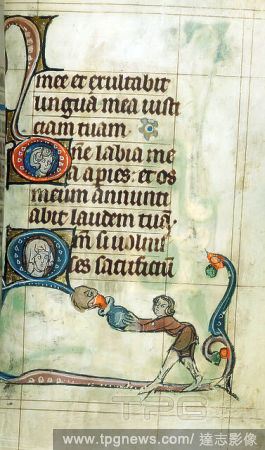 mee et exultabit
lingua mea iusti
ciam tuam
Dñe labia me
a apies: et os
meum annunti
abit laudem tuā.
Qm̄ si uoluis
ses sacrificiū
www.tpgnews.com / 達志影像